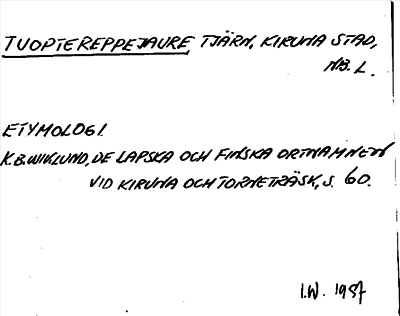 TUOPTEREPPEJAURE, TJÄRN, KIRUNA STAD,
NB. L.
ETYMOLOGI.
K.B. WIKLUND, DE LAPSKA OCH FINSKA ORTNAMNEN
VID KIRUNA OCH TORNETRÄSK, S. 60.
I.W. 1957